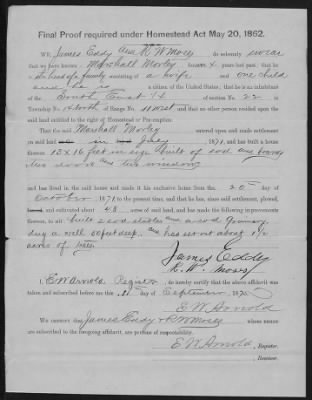 Final Proof required under Homestead Act May 20, 1862.
WE, James Eddy and R W Moses do solemnly swear
that we have known Marshall Morley for over 4 years last past; that he
is the head of a family consisting of a wife and one child
and he is a citizen of the United States; that he is an inhabitant
of the South East ¼ of section No. 22 in
Township No. 14 North of Range No. 11 West and that no other person resided upon the
said land entitled to the right of Homestead or Pre-emption.
That the said Marshall Morley entered upon and made settlement
on said land in July, 1871, and has built a house
thereon 13 x 16 feet in size built of sod and boards
two doors and two windows
and has lived in the said house and made it his exclusive home from the 20th day of
October 1871 to the present time, and that he has, since said settlement, plowed,
fenced, and cultivated about 48 acres of said land, and has made the following improvements
thereon, to wit: built 2 sod stables and a sod Granary
dug a well 60 feet deep, and has set out about 1½
acres of trees.
James Eddy
R. W. Moses
I, E W Arnold, Register, do hereby certify that the above affidavit was
taken and subscribed before me this 11 day of September 1875
E W Arnold
We certify that James Eddy & R W Moses whose names
are subscribed to the foregoing affidavit, are persons of respectability.
E W Arnold, Register.
, Receiver.